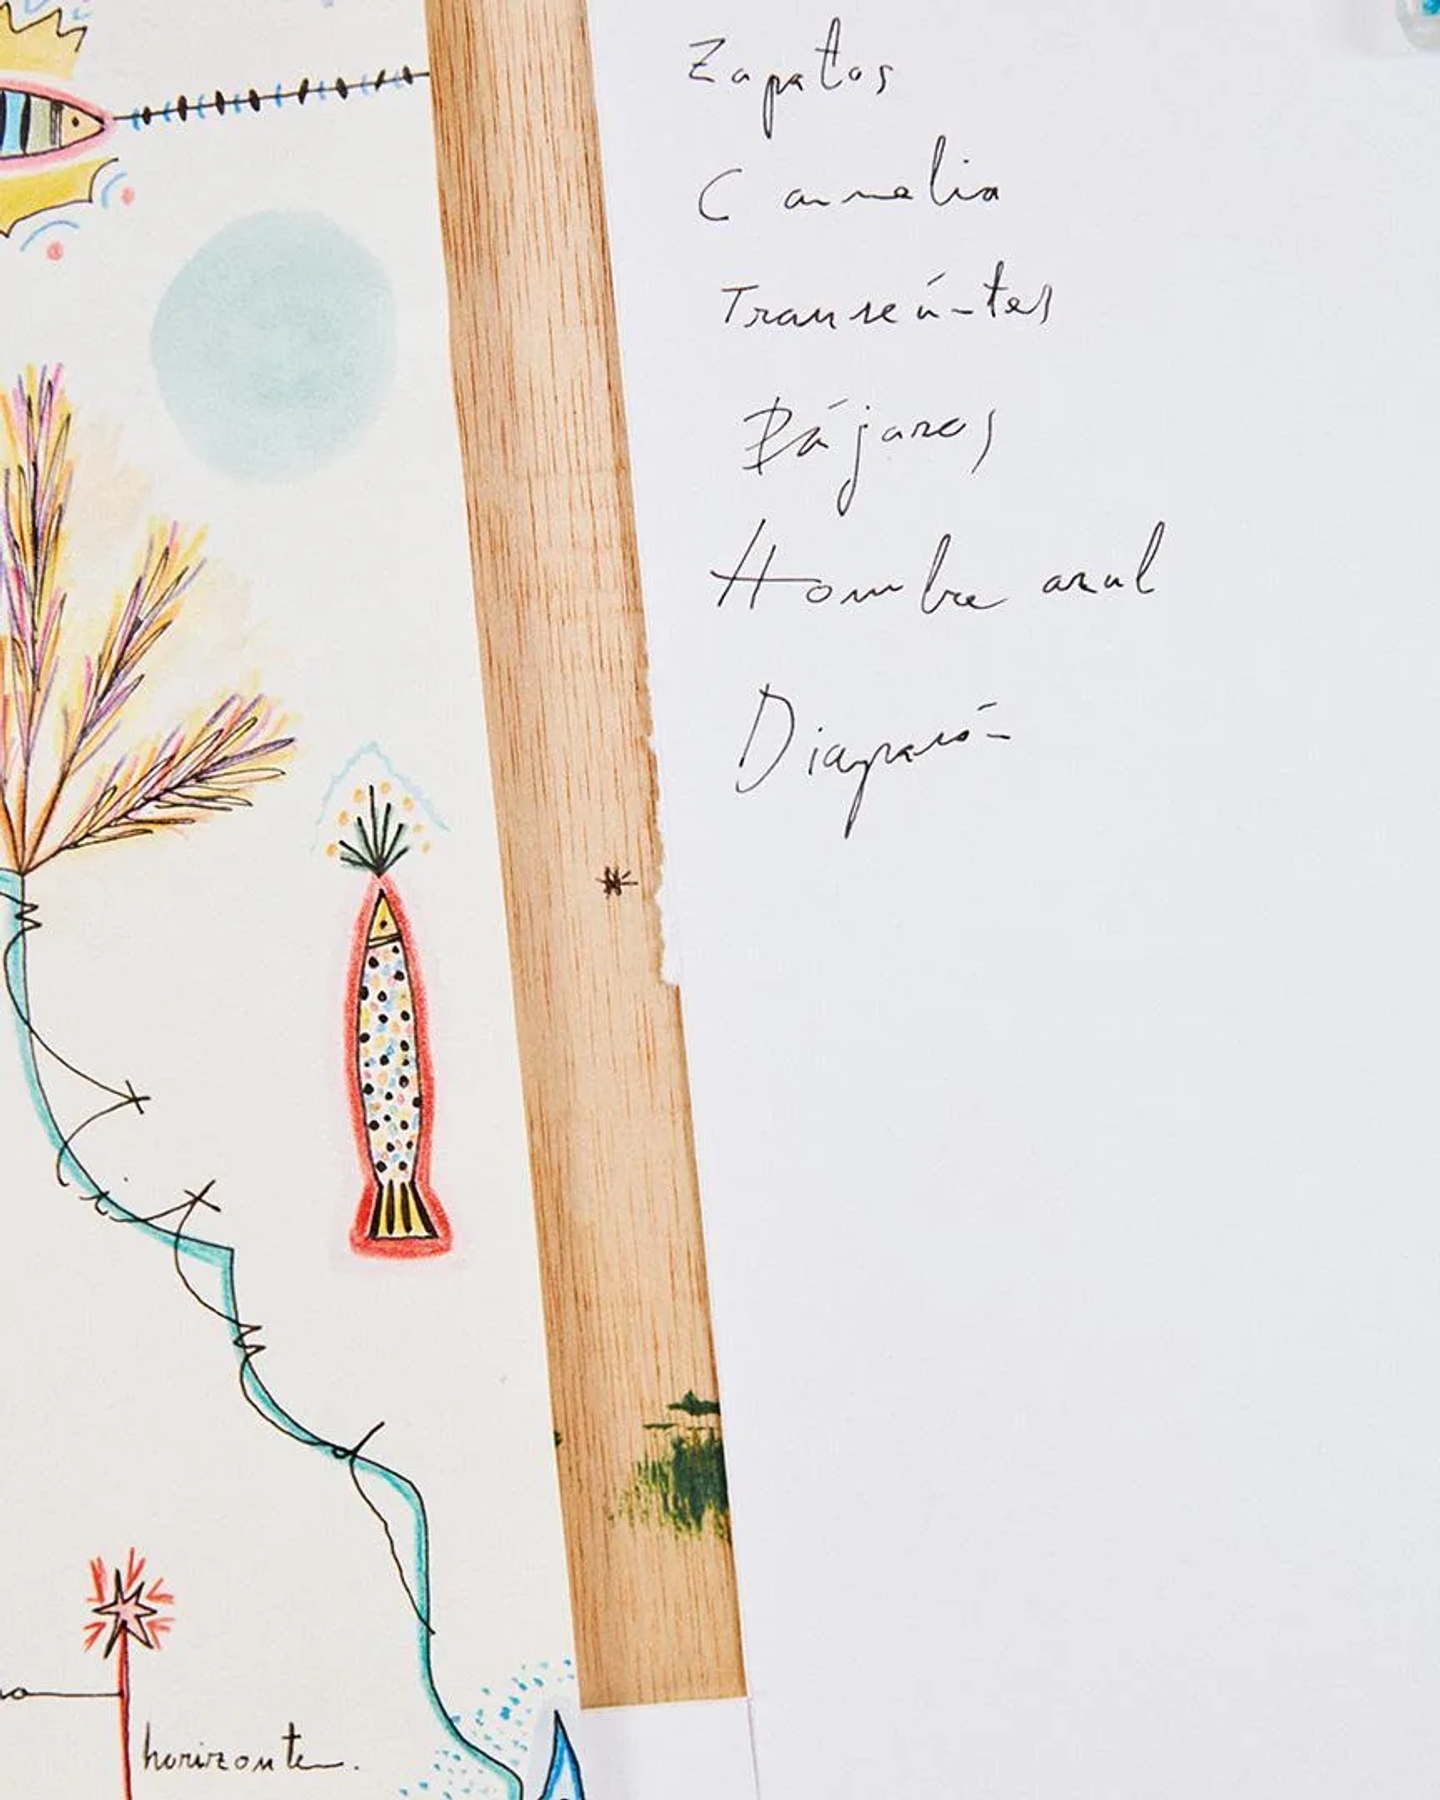 Zapatos
Camelia
Transeúntes
Pájaros
Hombre azul
Diapasón
horizonte.